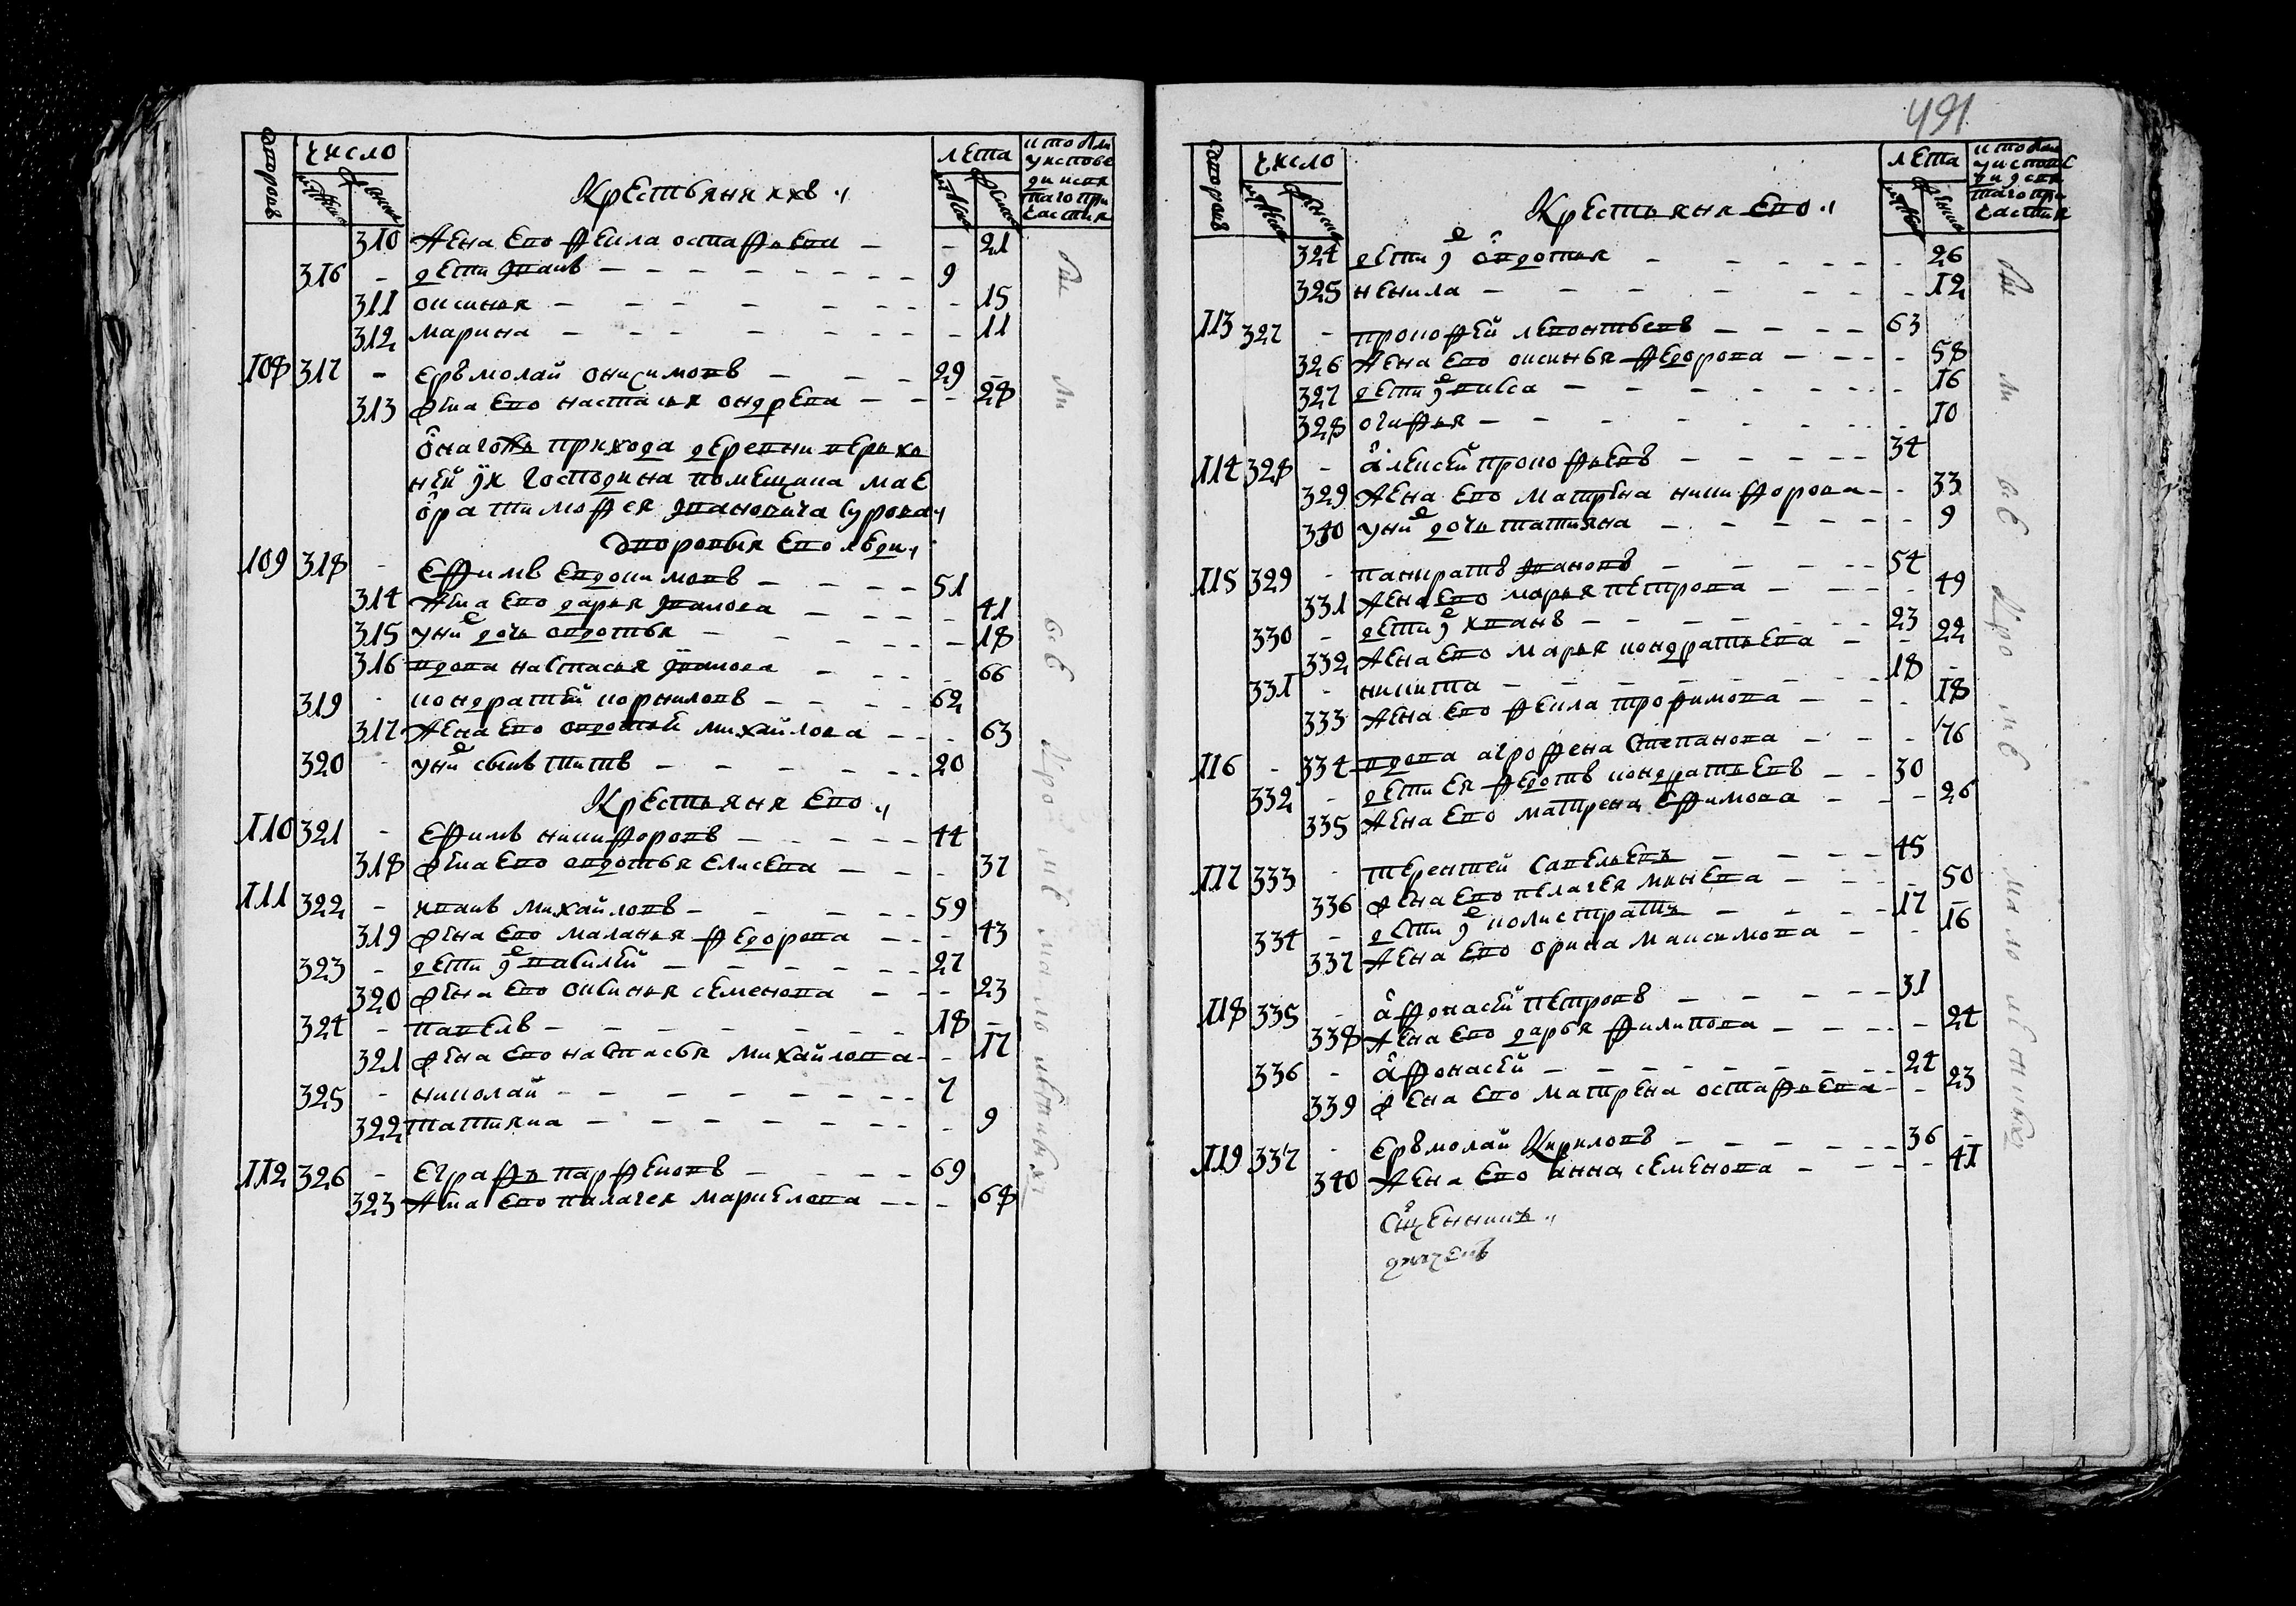 дворовъ
число
мужска
женска
Крестьяня ихъ
лѣта
мужска
женска
кто были
у исповѣ
ди и свя
таго при
частия
310 жена ево фекла остафьева — — 21
316 - дети иванъ — 9
311 оксинья — 15
312 марина — 11
108 317 - ермолай онисимовъ — 29 -
313 жена ево настасья ондреева — 28
онагожъ прихода деревни верьхъ
ней ук господина помещика мае
ора тимофея ивановича сурова
дворовыя ево люди
109 318 - ефимъ евдокимовъ — 51
314 жена ево дарья иванова — 41
315 у них дочь овдотья — 18
316 вдова настасья иванова — 66
319 - кондратей корниловъ — 62
317 жена ево овдотья михайлова — 63
320 - у них сынъ титъ — 20
Крестьяня ево
110 321 - ефимъ никифоровъ — 44
318 жена ево овдотья елисеева — 37
111 322 - иванъ михайловъ — 59
319 жена ево маланья федорова — 43
323 - дети их василей — 27
320 жена ево оксинья семенова — 23
324 - павелъ — 18 -
321 жена ево настасья михайлова — 17
325 - николай — 7
322 татияна — 9
112 326 - еграфъ парфеновъ — 69
323 жена ево палагея маркелова — 68
491
дворовъ
число
мужска
женска
Крестьяня ево
лѣта
мужска
женска
кто были
у исповѣ
ди и свя
таго при
частия
324 дети их овдотья — 26
325 ненила — 12
113 327 - прокофей леонтьевъ — 63
326 жена ево оксинья федорова — 58
327 дети их васса — 16
328 огафья — 10
114 328 - алексей прокофьевъ — 34
329 жена ево матрена никифорова — 33
330 у них дочь татияна — 9
115 329 - панкратъ ивановъ — 54
331 жена ево марья петрова — 49
330 - дети их иванъ — 23
332 жена ево марья кондратьева — 22
331 - никита — 18 -
333 жена ево фекла трофимова — 18
116 - 334 вдова агрофена степанова — 76
332 - дети ея федотъ кондратьевъ — 30
335 жена ево матрена ефимова — 26
117 333 - терентей савельевъ — 45
336 жена ево пелагея минеева — 50
334 - дети их колистратъ — 17 -
337 жена ево орина максимова — 16
118 335 - афонасей петровъ — 31
338 жена ево дарья филипова — 24
336 - афонасей — 24
339 жена ево матрена остафьева — 23
119 337 - ермолай кириловъ — 36 -
340 жена ево анна семенова — 41
Сщенникъ